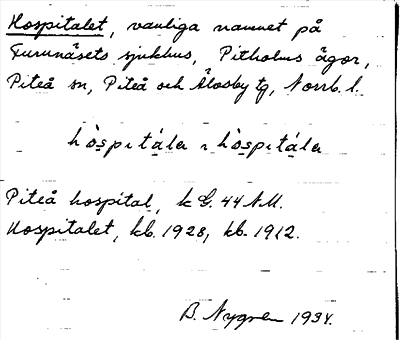 Hospitalet, vanliga namnet på
Furunäsets sjukhus, Pitholms ägor,
Piteå sn, Piteå och Älvsby tg, Norrb. l.
hòspitála ɿ hòspitála
Piteå hospital, k G. 44 N.U.
Hospitalet, kb. 1928, kb. 1912.
B. Nygren 1934.